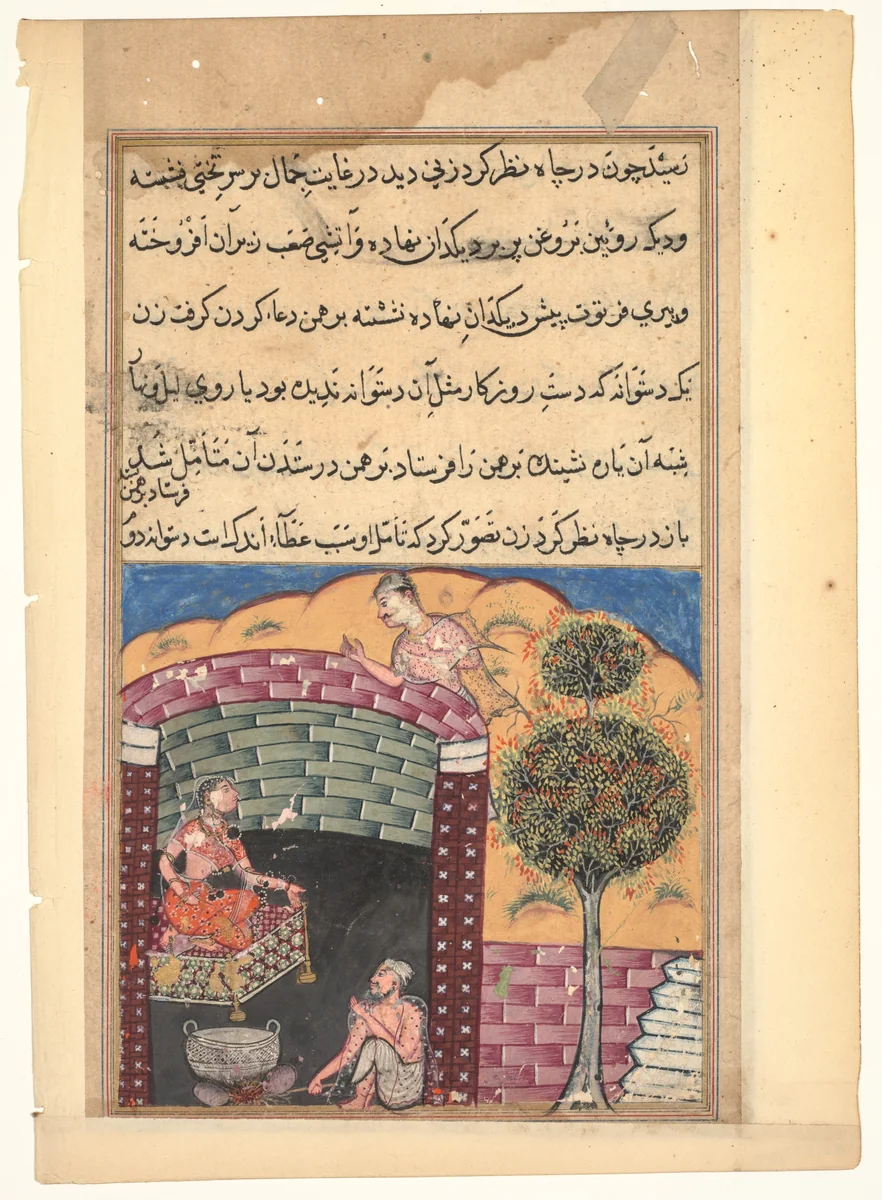 رسید چون در چاه نظر کرد زنی دید در غایت جمال بر سر تختی نشسته
و دیک رویین بروغن پر بر دیکدان نهاده و آتشی صعب زیر آن افروخته
و پیری فرتوت پیش دیکدان نهاده نشسته برهمن دعا کردن کرفت زن
یک دستوانه که دست روزکار مثل آن دستوانه ندیده بود یا روی لیل و نهار
شبه آن یاره نشینده برهمن را فرستاد برهمن در ستدن آن متأمل شد
فرستاد برهمن
باز در چاه نظر کرد زن تصور کرد که تأمل او سبب عطاء اندک است دستوانه دوم